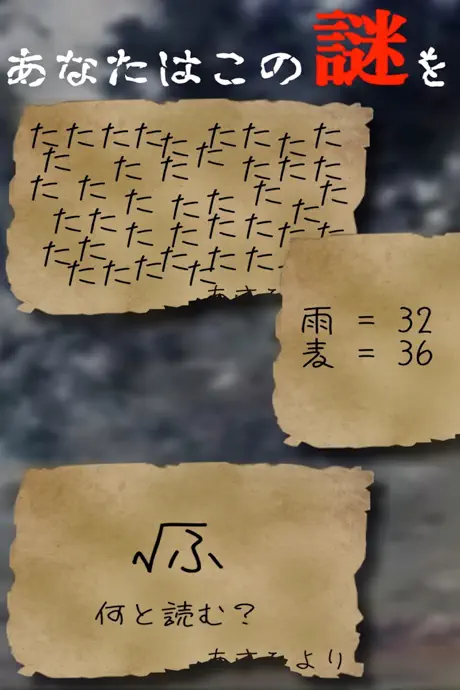 あなたはこの謎を
たたたたたたたたた
たたたたたたた
たたたたたたたた
たたたたたたた
たたたたたた
たたた
雨 = 32
麦 = 36
√ふ
何と読む?
より